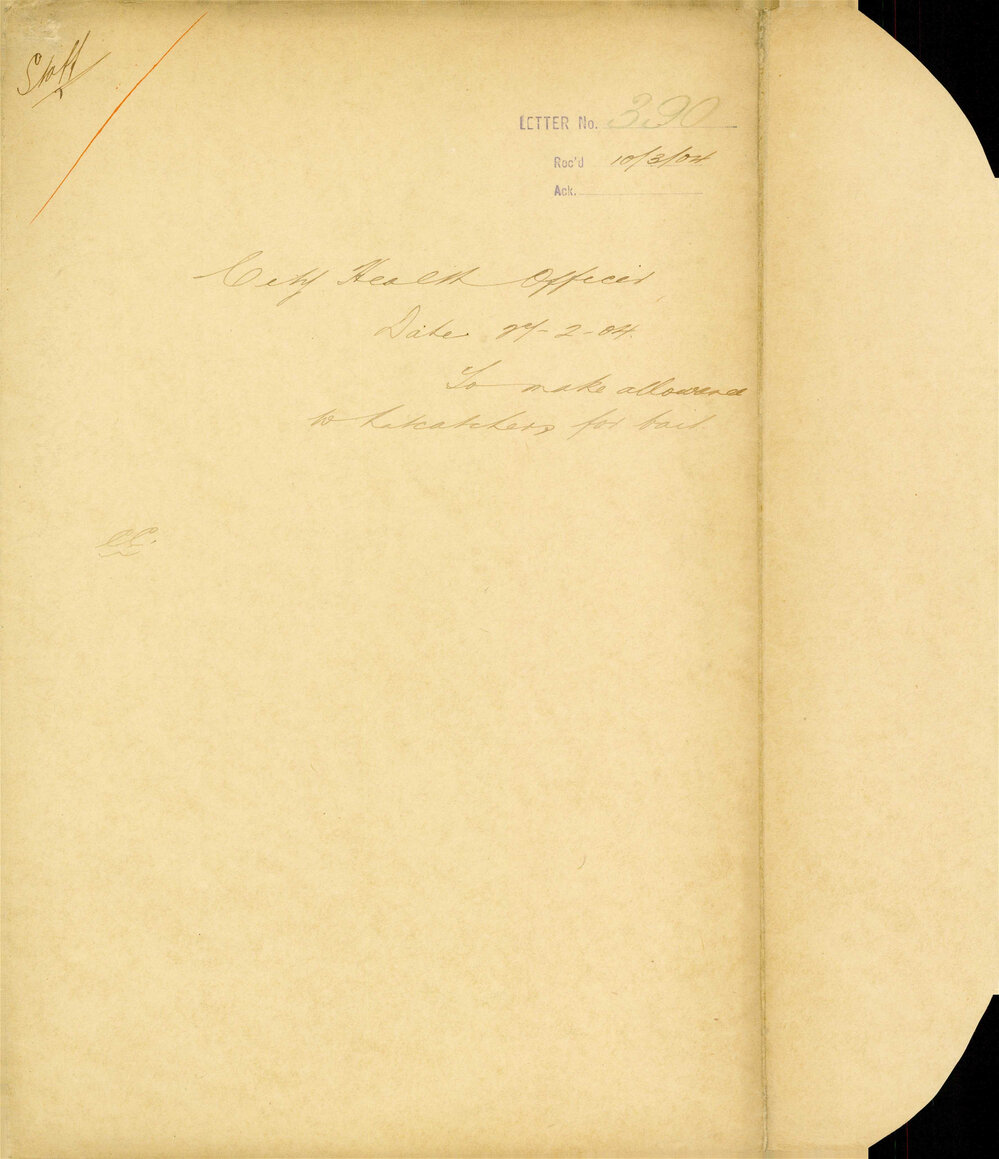 Staff
LETTER No. 390
Rec'd 10/3/04
Ack.
City Health Officer,
Date 27-2-04.
To make allowance
to ratcatchers for bait.